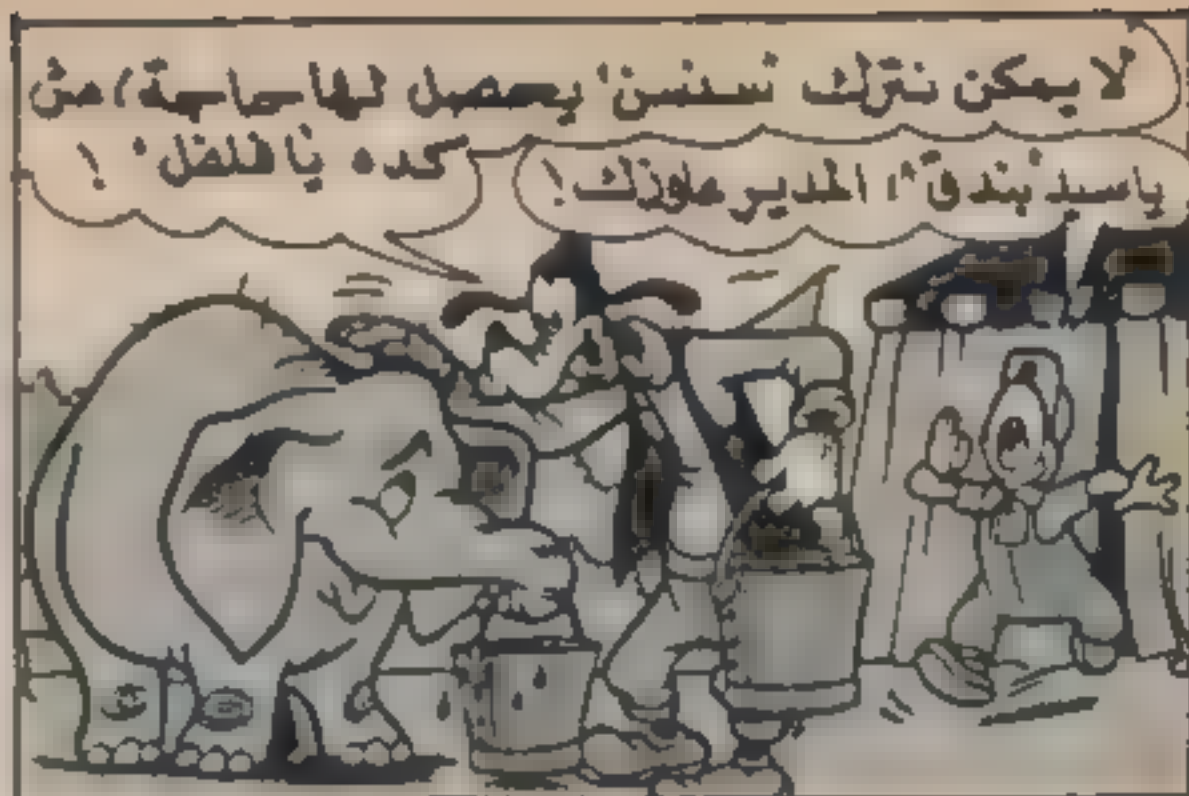 لا يمكن نترك "سنسن" يحصل لها حاجة، مش
كده يا فلفل، !
يا سيد "بندق"، المدير عاوزك !